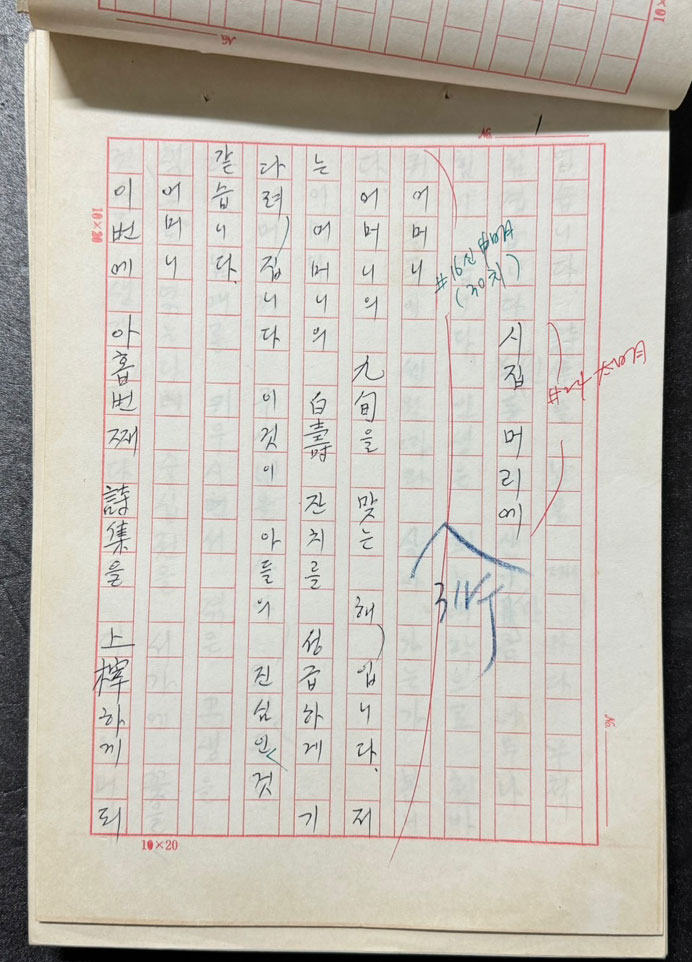 No. 1
시집 머리에
#16신명조
(30치)
어머니
어머니의 九旬을 맞는 해입니다. 저
는 어머니의 白壽 잔치를 성급하게 기
다려집니다 이것이 아들의 진심인 것
같습니다.
어머니
이번에 아홉번째 詩集을 上梓하게 되
10×20
10×20
No.
No.
10×